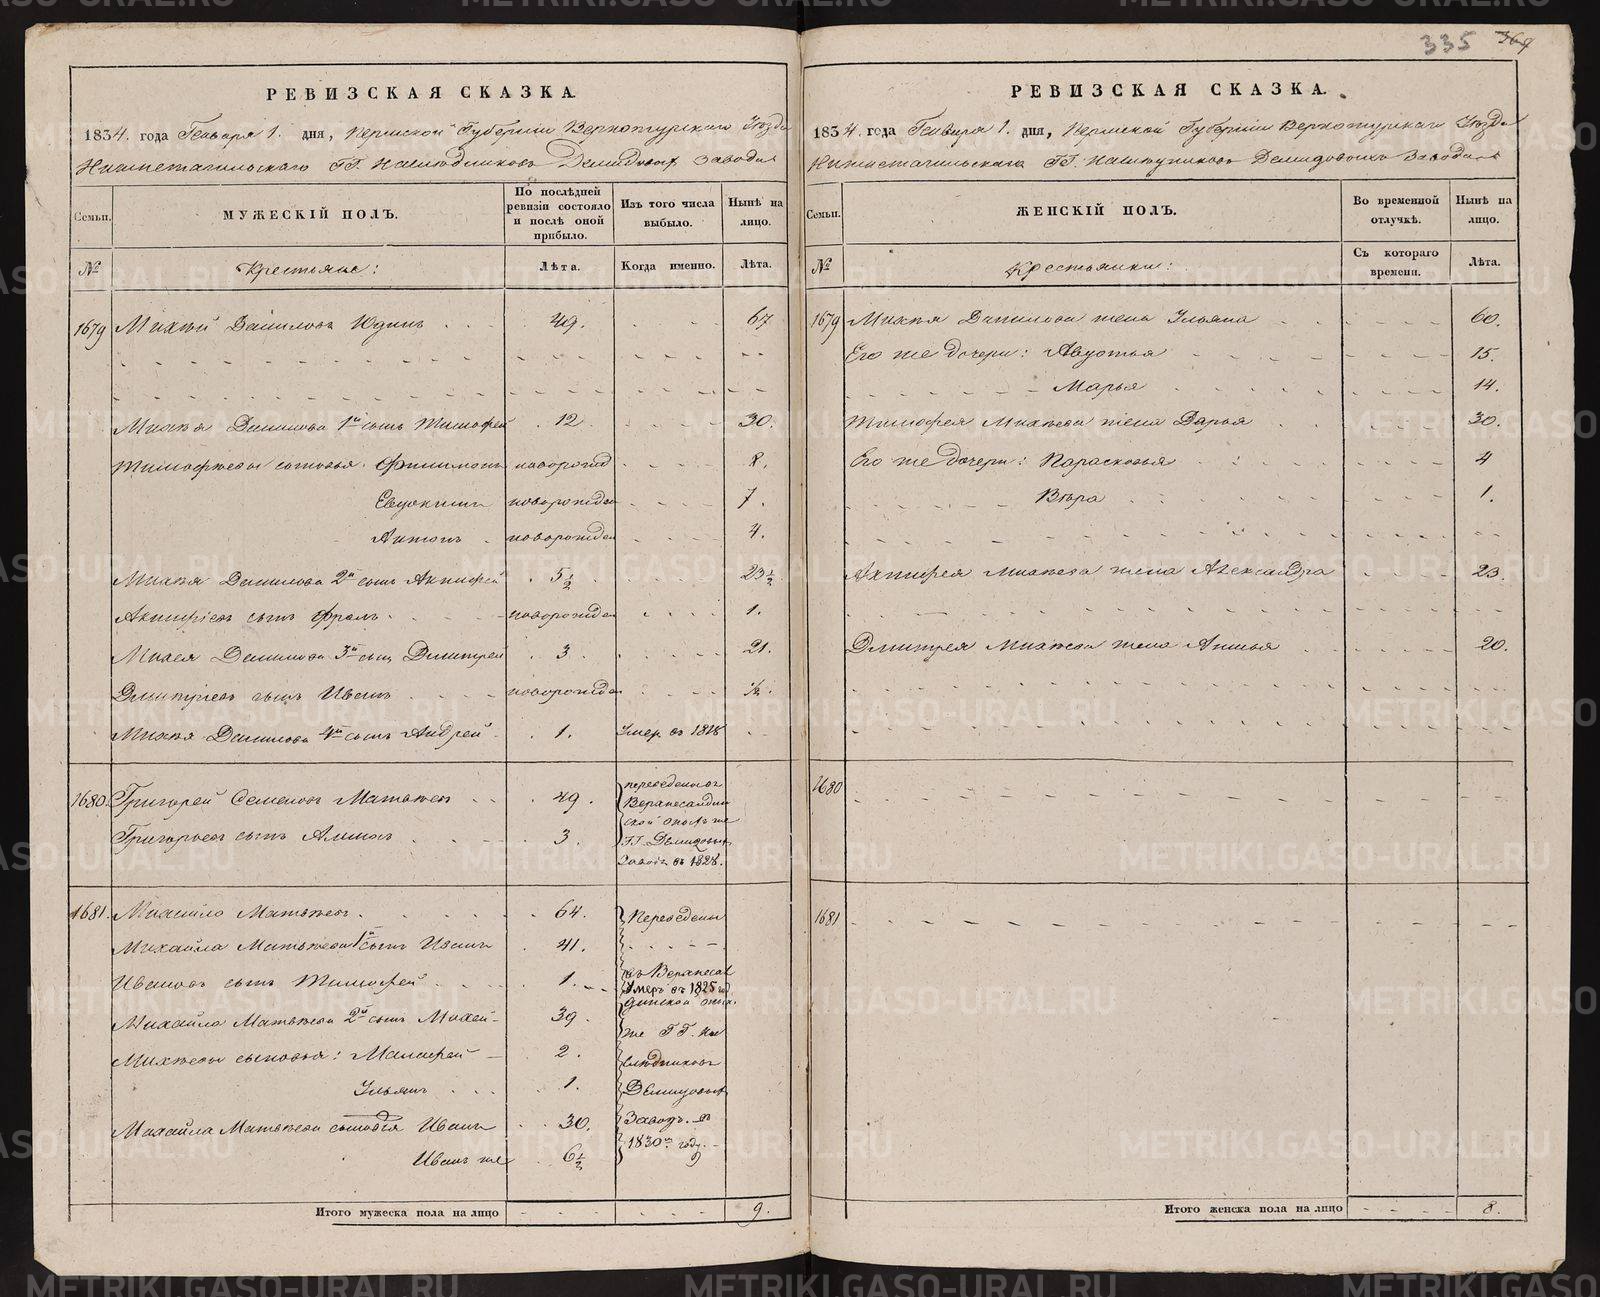 335 369
РЕВИЗСКАЯ СКАЗКА.
1834. года Генваря 1. дня, Пермской Губернии Верхотурскаго Уезда
Нижнетагильскаго ГГ. Наследниковъ Демидовыхъ Завода
Семьи.
МУЖЕСКІЙ ПОЛЪ.
По послѣдней ревизіи состояло и послѣ оной прибыло.
Изъ того числа выбыло.
Нынѣ на лицо.
№ Крестьяне: Лѣта. Когда именно. Лѣта.
1679 Михѣй Даниловъ Юдинъ 49. 67
Михѣя Данилова 1й сынъ Тимофей 12 30.
Тимофѣевы сыновья: Филимонъ новорожд 8.
Евдокимъ новорожден 7.
Антонъ новорожден 4.
Михѣя Данилова 2й сынъ Акинфей 5½ 23½
Акинфіевъ сынъ новорожден 1.
Михея Данилова 3й сынъ Дмитрей 3 21.
Дмитріевъ сынъ Иванъ новорожден ½.
Михѣя Данилова 4й сынъ Андрей 1. Умер. въ 1828
1680. Григорей Семеновъ Матвѣевъ 49. переведены въ
Григорьевъ сынъ 3.
ГГ. Демидовых
Заводъ въ 1828.
1681. Михайло Матвѣевъ 64. Переведены
Михайла Матвѣева 1й сынъ Иванъ 41.
Ивановъ сынъ Тимофей 1. Умеръ въ 1825 год
Михайла Матвѣева 2й сынъ Михей 39.
же ГГ. На
Михѣевы сыновья: Малафей 2. слѣдниковъ
Ульянъ 1. Демидовых
Михайла Матвѣева сыновья Иванъ 30. Заводъ. въ
1830м году.
Иванъ же 6½
Итого мужеска пола на лицо 9.
РЕВИЗСКАЯ СКАЗКА.
1834. года Генваря 1. дня, Пермской Губерніи Верхотурскаго Уезда
Нижнетагильскаго ГГ. Наследниковъ Демидовыхъ Завода
Семьи.
ЖЕНСКІЙ ПОЛЪ.
Во временной отлучкѣ.
Нынѣ на лицо.
№ Крестьянки: Съ котораго времени. Лѣта.
1679 Михѣя Данилова жена Ульяна 60.
Его же дочери: Авдотья 15.
Марья 14.
Тимофея Михѣева жена Дарья 30.
Его же дочери: Парасковья 4
Вѣра 1.
Акинфея Михѣева жена Александра 23.
Дмитрея Михѣева жена Анисья 20.
1680
1681
Итого женска пола на лицо 8.
METRIKI.GASO-URAL.RU